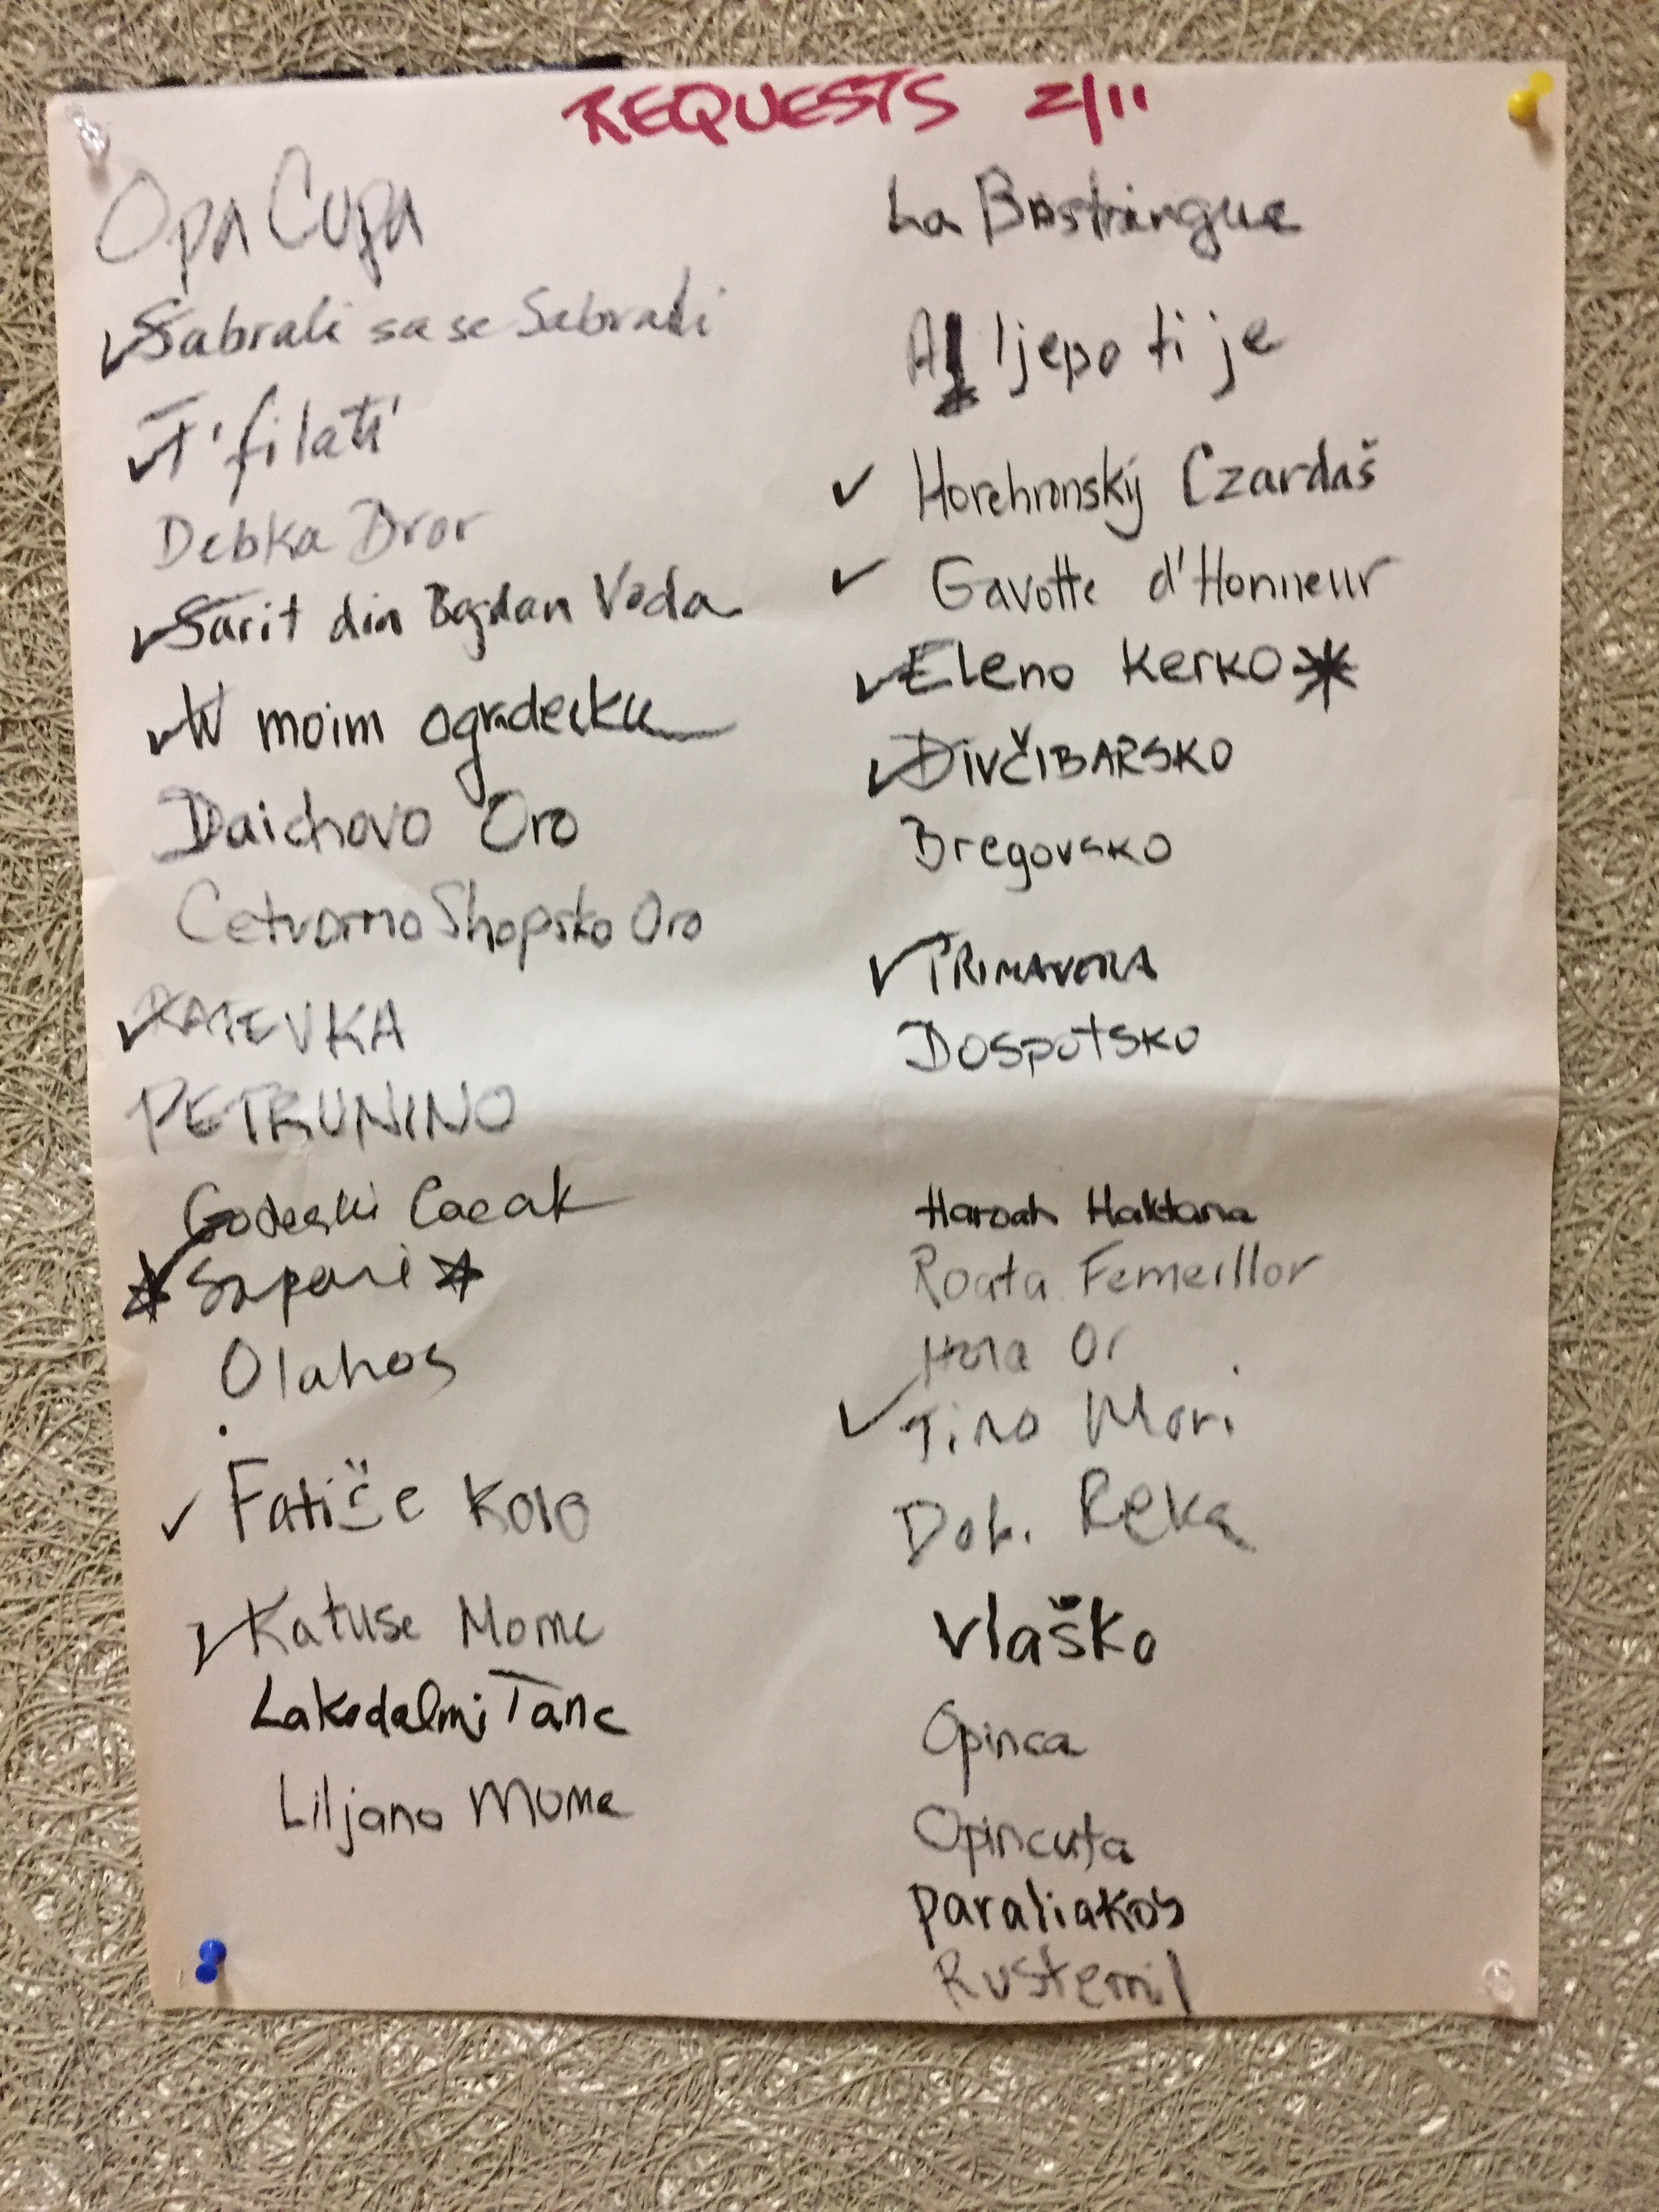 REQUESTS 2/11
Opa Cupa
Sabrali sa se Sabrali
T'filati
Debka Dror
Sarit din Bogdan Voda
W moim ogradecku
Daichovo Oro
Cetvorno Shopsko Oro
RATEVKA
PETRUNINO
Godecki Cacak
Sapari
Olahos
Fatiše Kolo
Katuse Mome
Lakodalmi Tanc
Liljano Mome
La Bastringue
Al ljepo ti je
Horehronský Czardaš
Gavotte d'Honneur
Eleno Kerko
DIVČIBARSKO
Bregovsko
PRIMAVERA
Dospotsko
Haroah Haktana
Roata Femeillor
Hora Or
Tino Mori
Dob. Reka
Vlaško
Opinca
Opincuta
Paraliakos
Rustemil